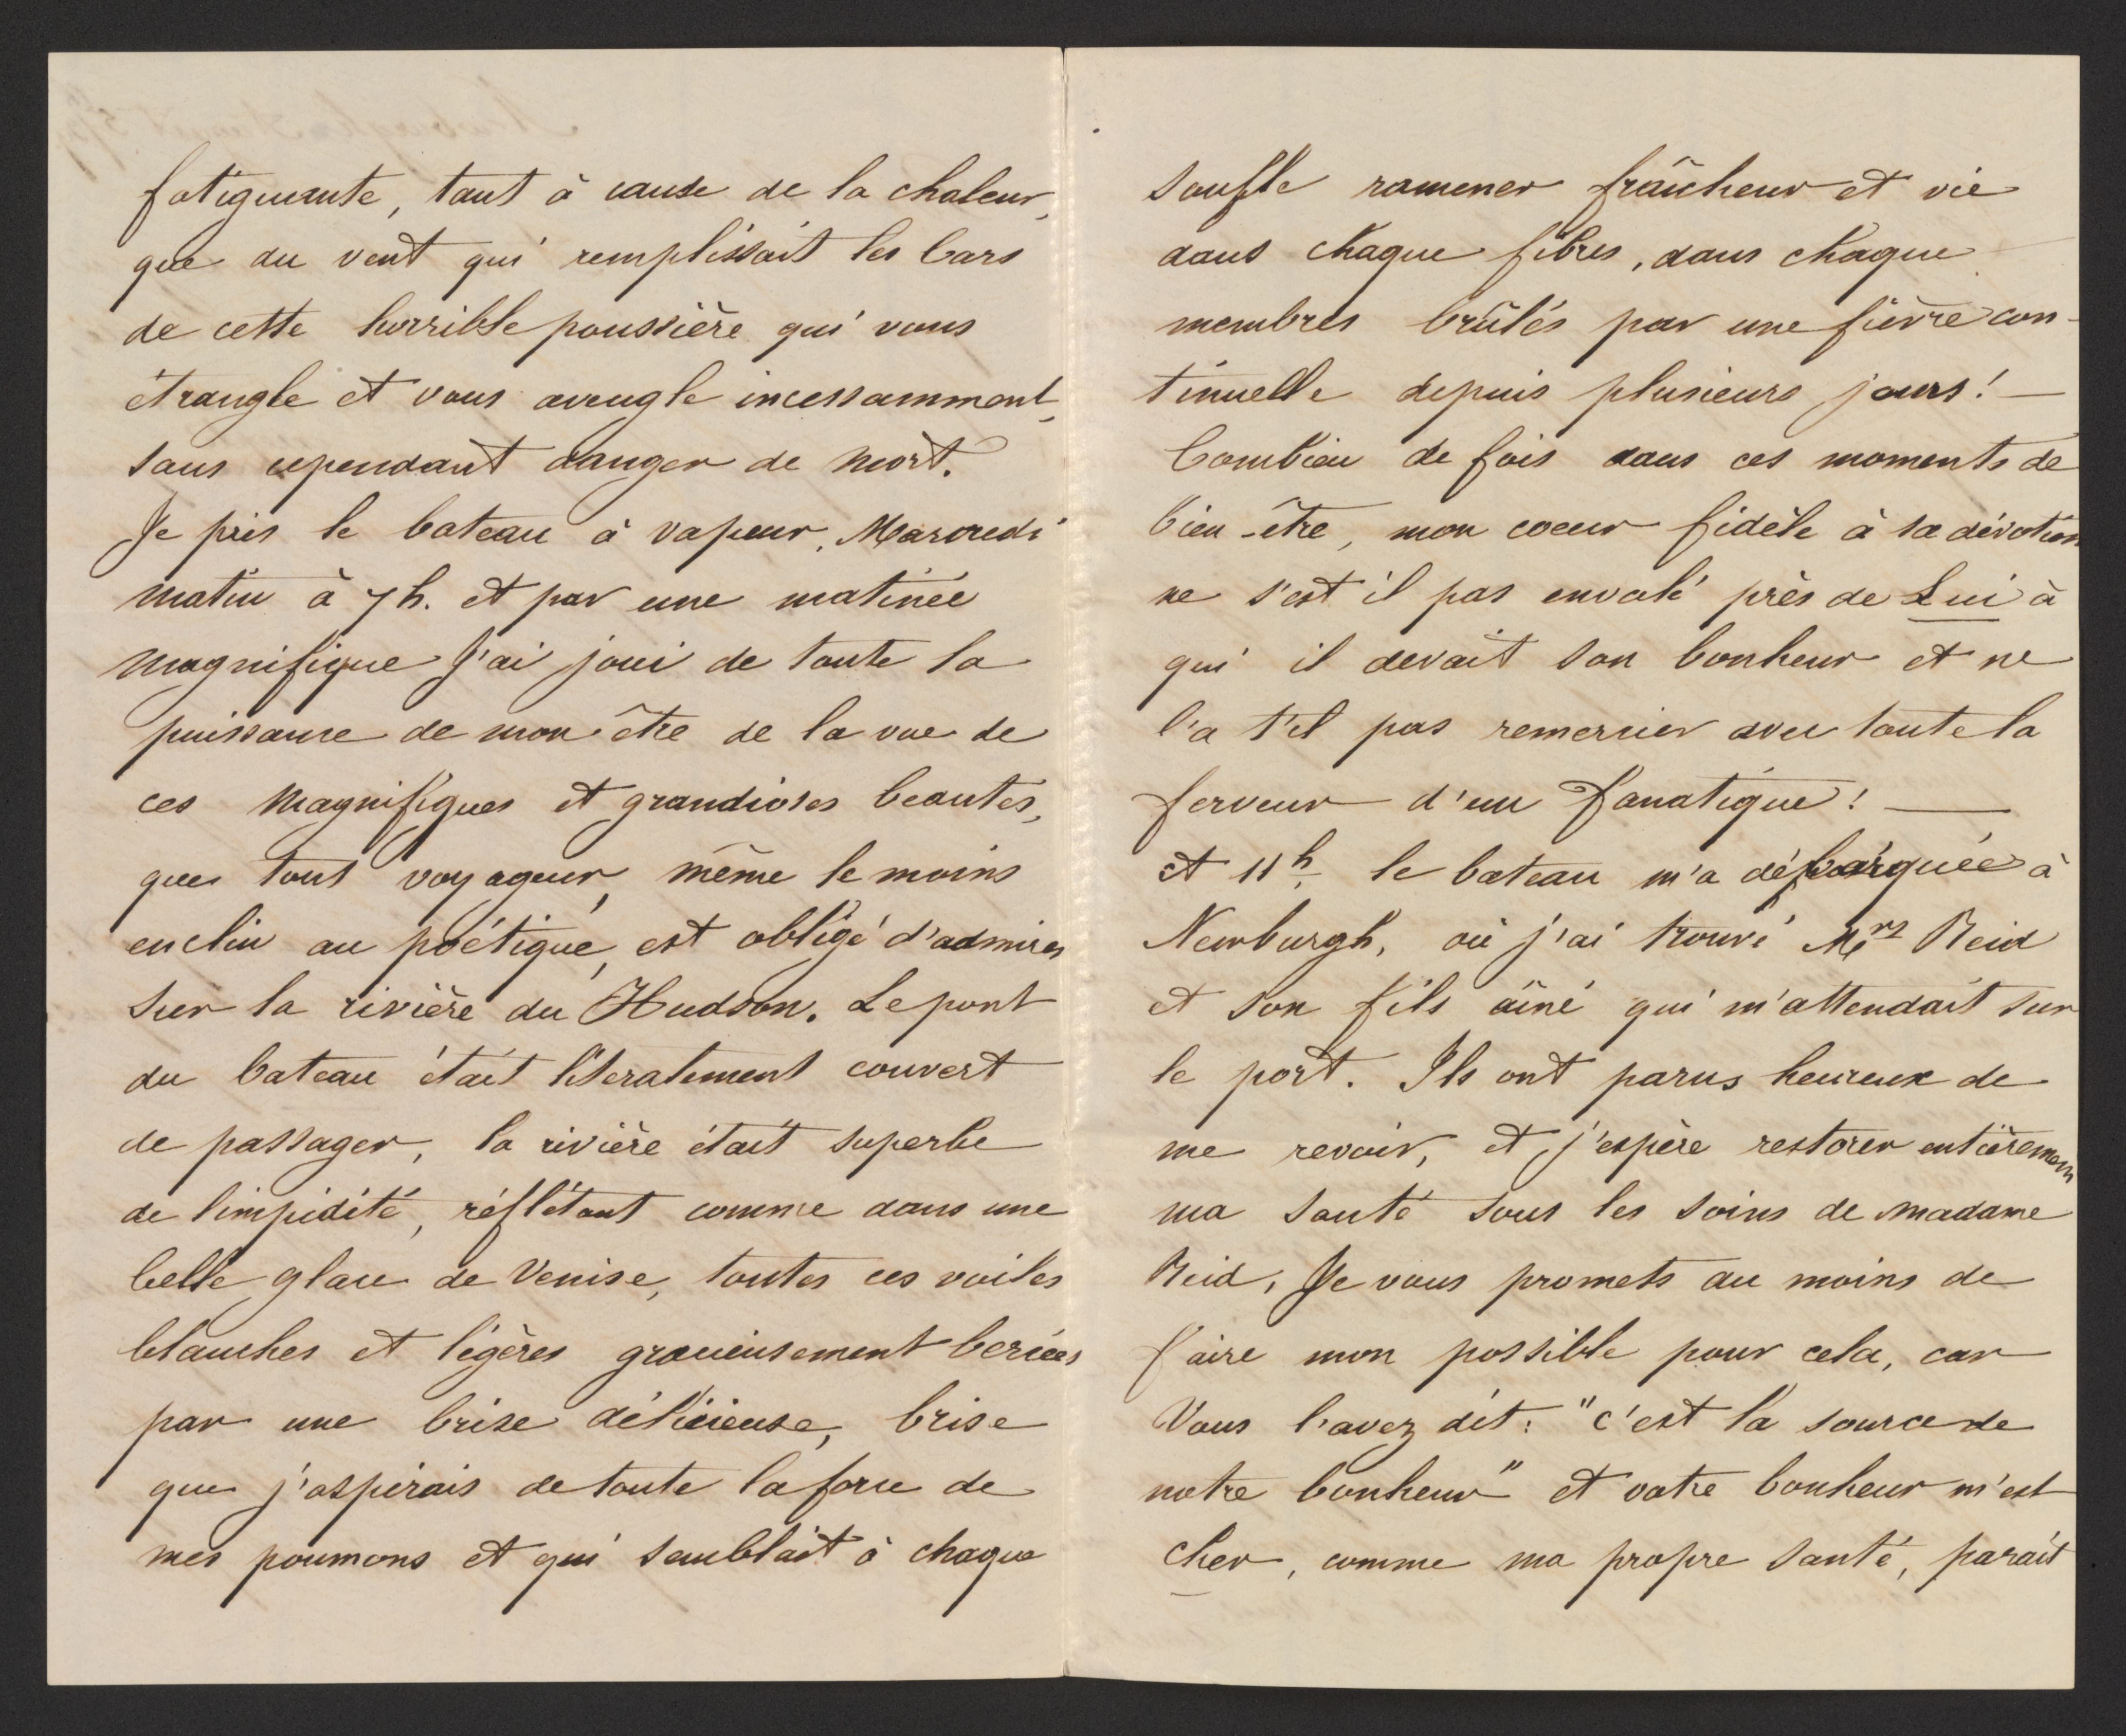 fatiguante, tant à cause de la chaleur,
que du vent qui remplissait les Cars
de cette horrible poussière qui vous
étrangle et vous aveugle incessamment,
sans cependant danger de mort.
Je pris le bateau à vapeur, Marcredi
matin à 7 h. et par une matinée
magnifique j'ai joui de toute la
puissance de mon être de la vue de
ces magnifiques et grandioses beautés,
que tout voyageur, même le moins
enclin au poétique, est obligé d'admirer
sur la rivière du Hudson. Le pont
du bateau était literalement couvert
de passager, la rivière était superbe
de limpidité, réflétant comme dans une
belle glace de Venise, toutes ces voiles
blanches et légères gracieusement bercées
par une brise délicieuse, brise
que j'aspirais de toute la force de
mes poumons et qui semblait à chaque
soufle ramener fraîcheur et vie
dans chaque fibres, dans chaque
membres brûlés par une fièvre con-
tinuelle depuis plusieurs jours! —
Combien de fois dans ces moments de
bien-être, mon coeur fidèle à sa dévotion
ne s'est il pas envolé près de Lui à
qui il devait son bonheur et ne
l'a t'il pas remercier avec toute la
ferveur d'un fanatique! —
A 11h. le bateau m'a débarquée à
Newburgh, où j'ai trouvé Mrs Reid
et son fils aîné qui m'attendait sur
le port. Ils ont parus heureux de
me revoir, et j'espère restorer entièremen
ma santé sous les soins de madame
Reid, Je vous promets au moins de
faire mon possible pour cela, car
Vous l'avez dit: "c'est la source de
notre bonheur" et votre bonheur m'est
cher, comme ma propre santé, parait